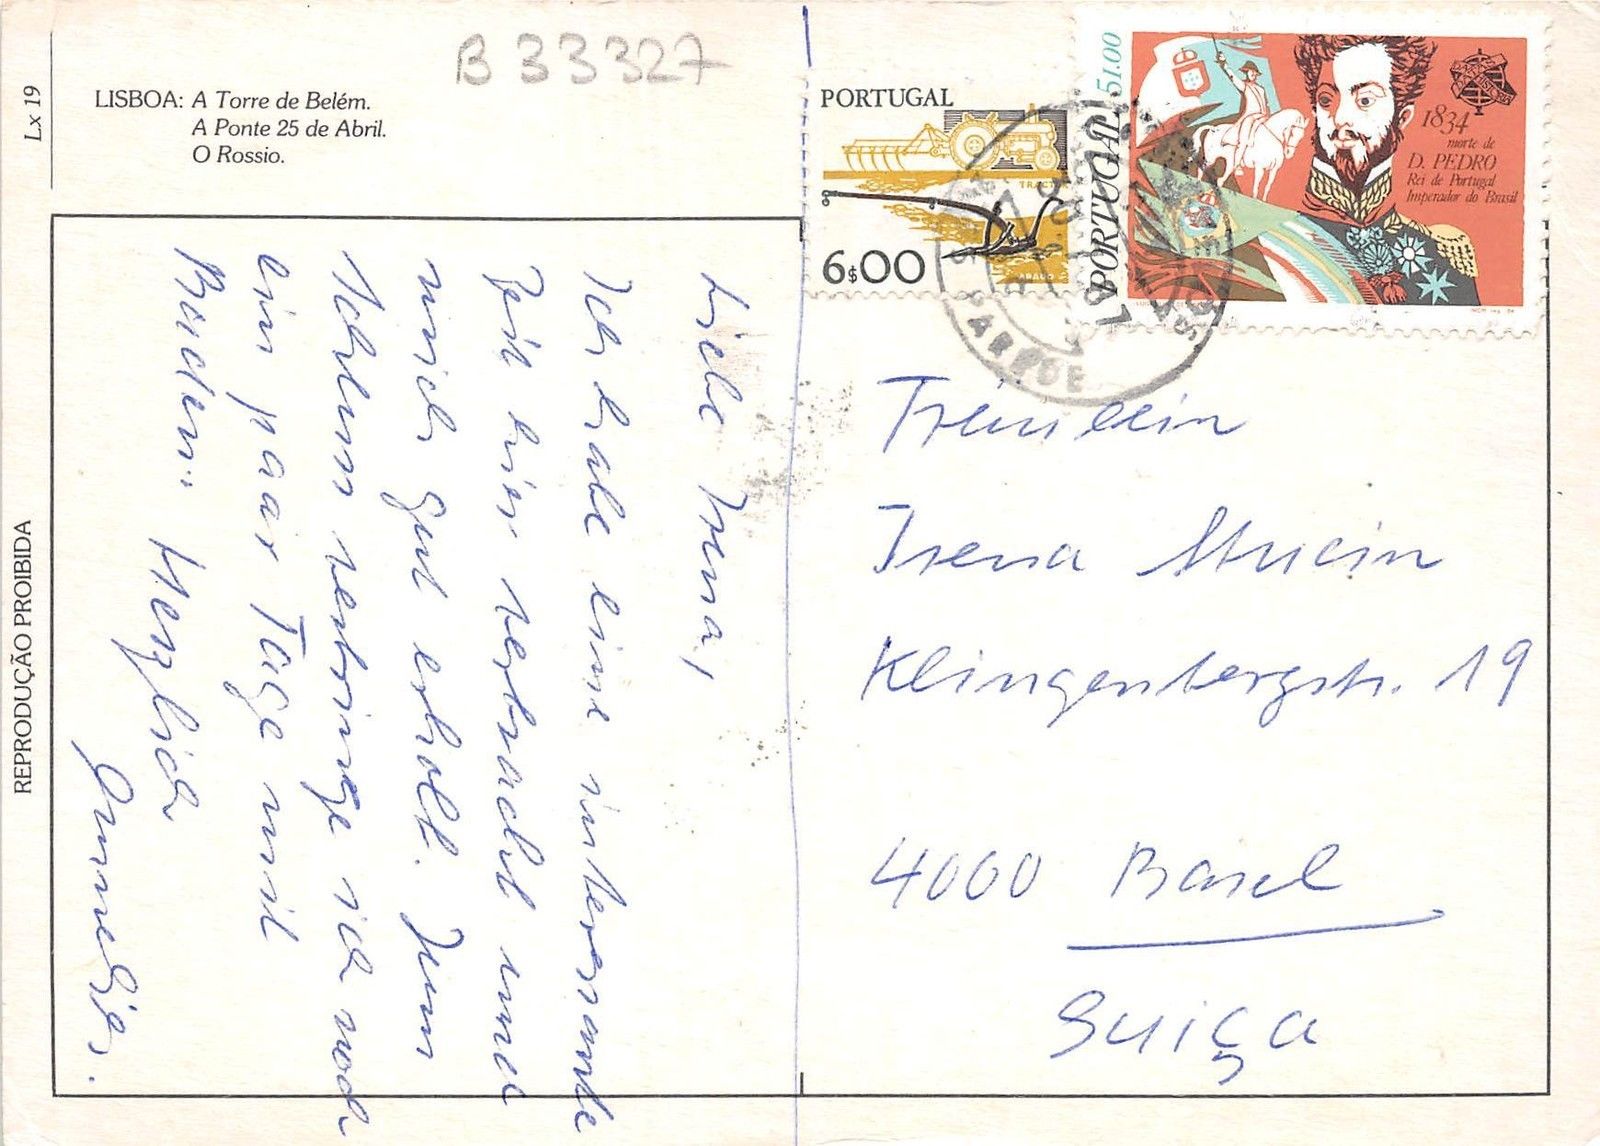 B 33327
Lx 19
LISBOA: A Torre de Belém.
A Ponte 25 de Abril.
O Rossio.
REPRODUÇÃO PROIBIDA
PORTUGAL
TRACTOR
ARADO
6$00
51.00
PORTUGAL
1834
morte de
D. PEDRO
Rei de Portugal
Imperador do Brasil
Liebe Irena,
Ich habe eine interessante
Zeit hier verbracht und
mich gut erholt. Zum
Schluss verbringe ich noch
ein paar Tage mit
Baden. Herzlich
Fräulein
Irena
Klingenbergstr. 19
4000 Basel
Suiça